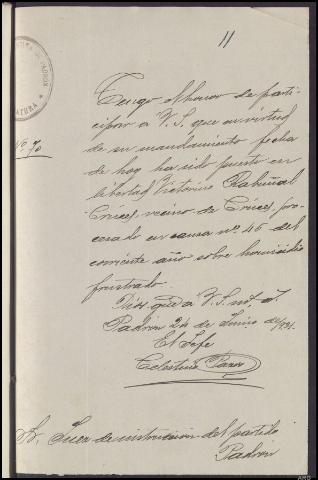 11
PADRON
Nº 70
Tengo el honor de parti-
cipar a V.S. que en virtud
de su mandamiento fecha
de hoy ha sido puesto en
libertad Victorino Rabuñal
Cruces, vecino de Cruces, pro-
cesado en causa nº 46 del
corriente año sobre homicidio
frustrado.
Dios gue a V.S. ms. as.
Padrón 24 de Junio de 1921.
El Jefe
Celestino
Sr. Juez de instruccion del partido
Padrón